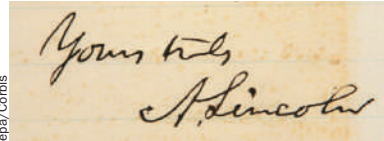 Yours truly
A. Lincoln
epa/Corbis